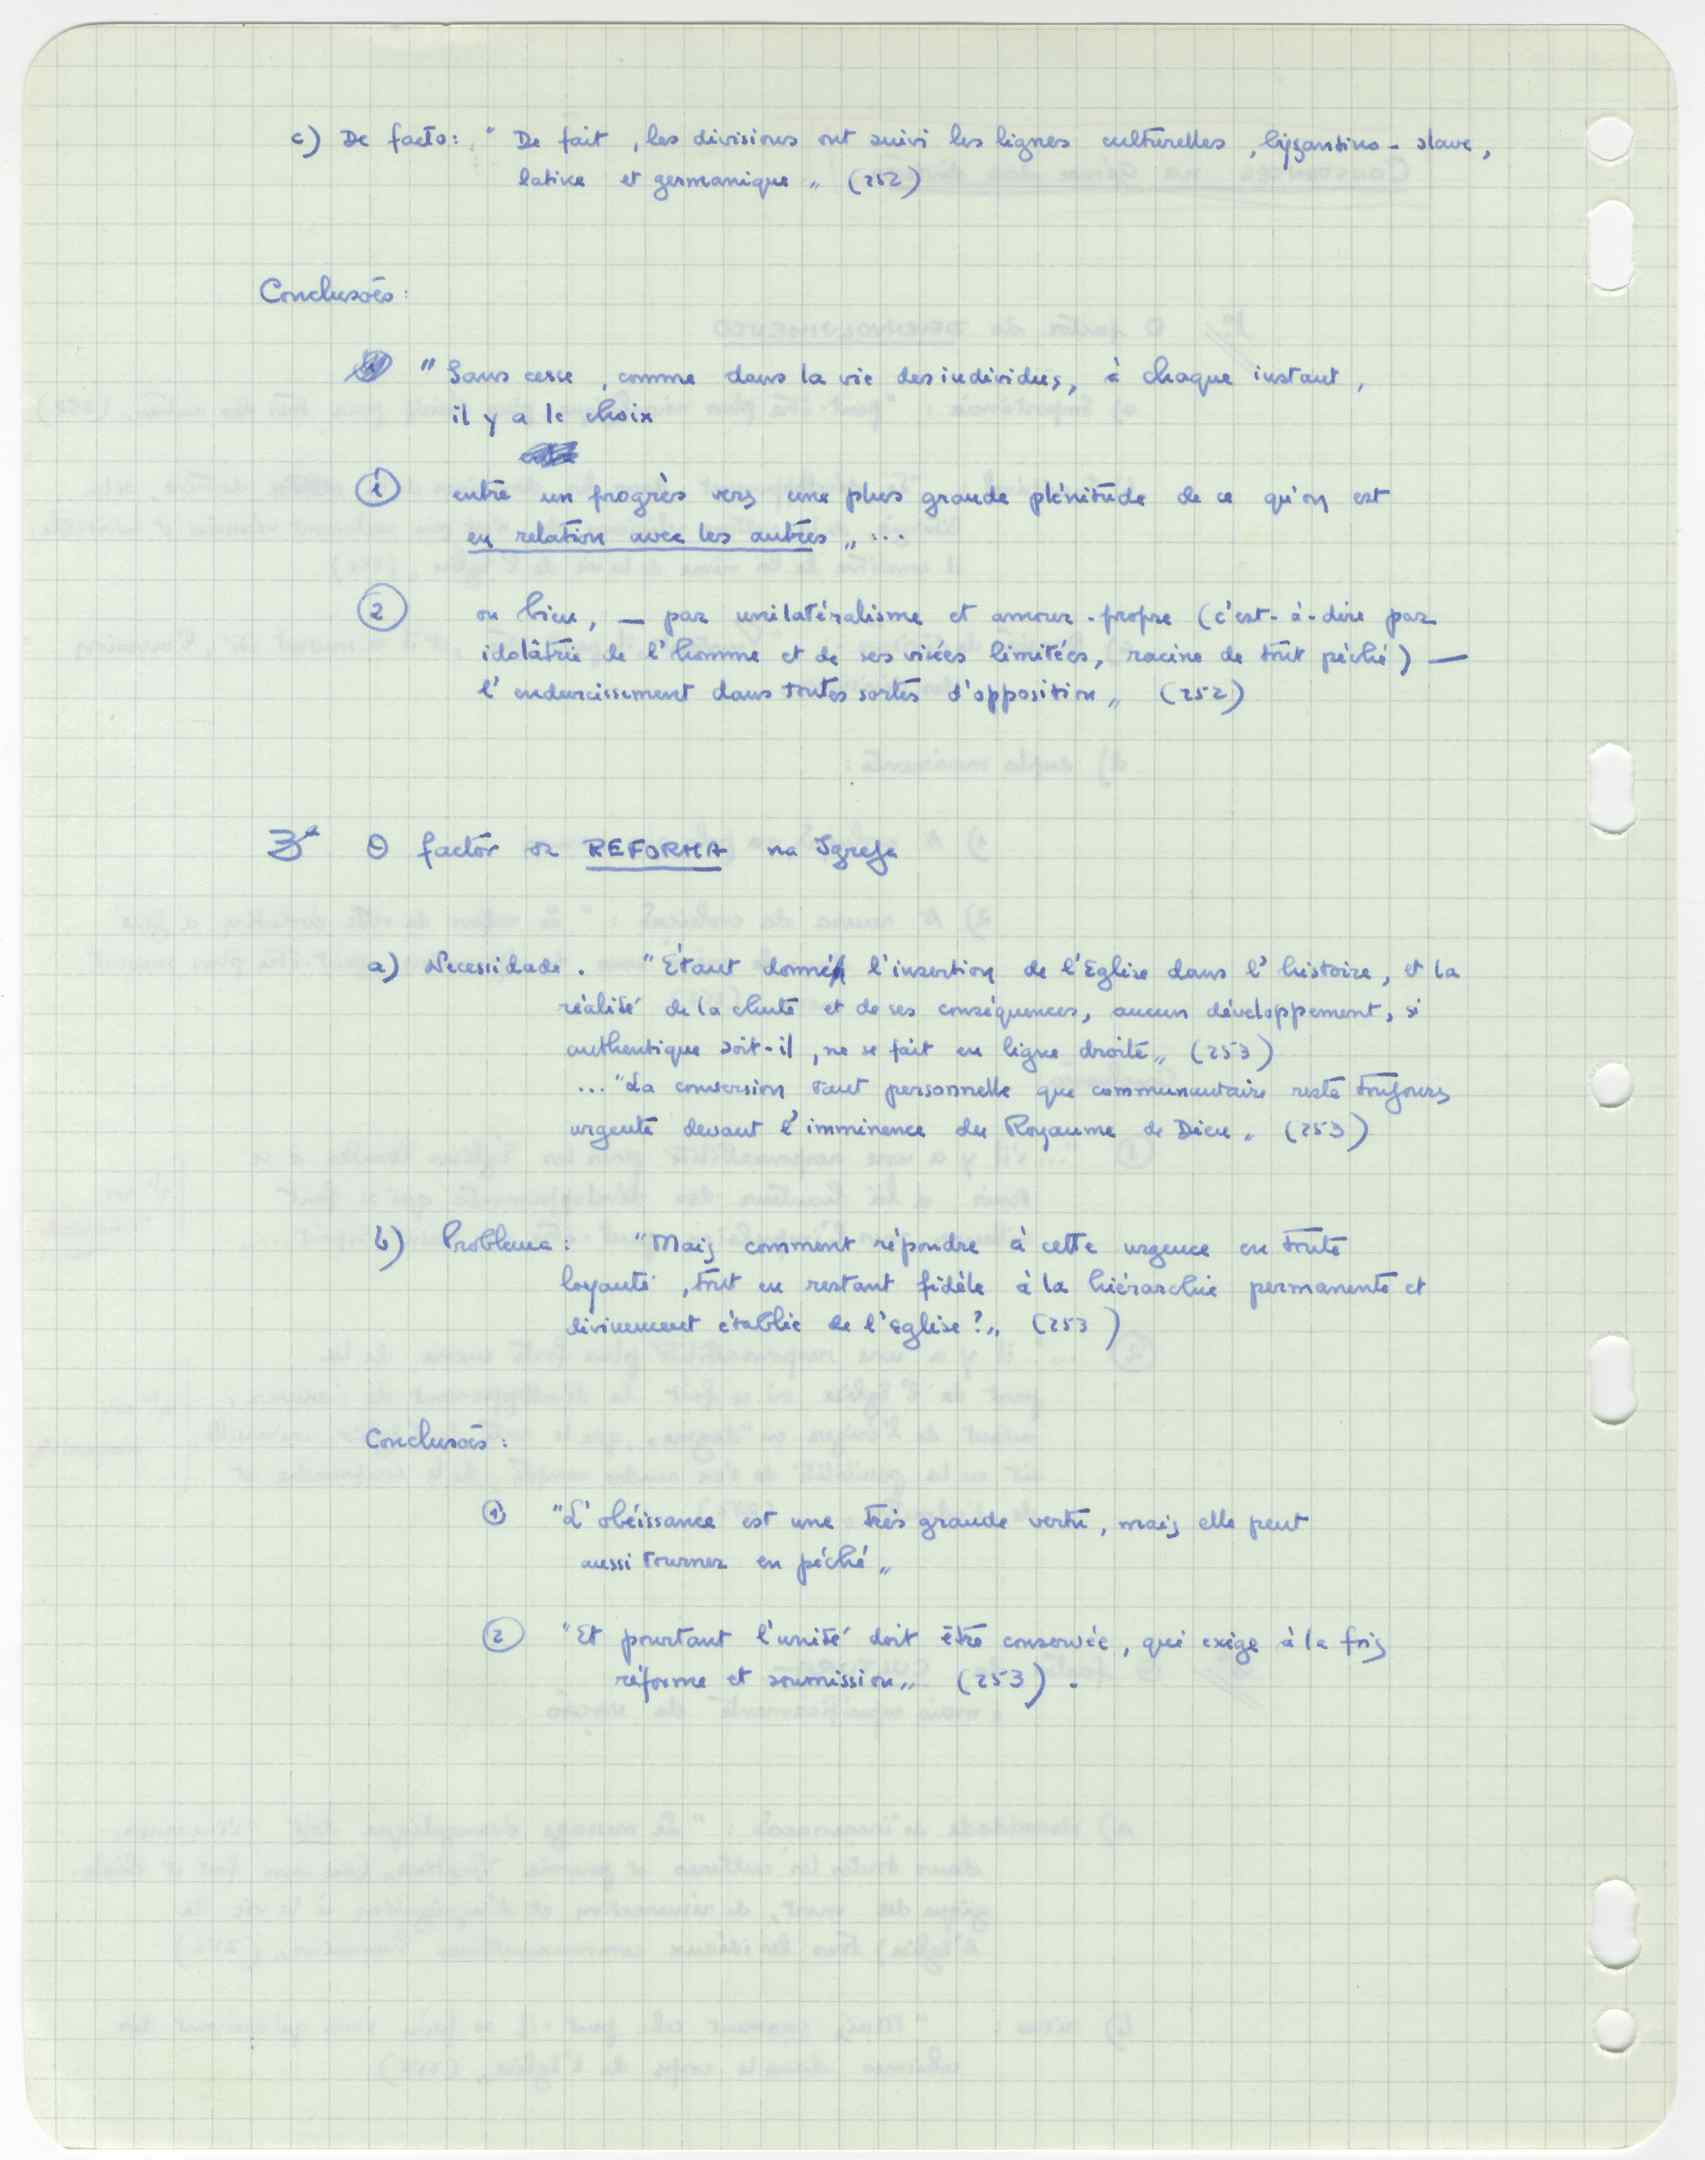 c) De facto: " De fait, les divisions ont suivi les lignes culturelles, byzantino-slave,
latine et germanique „ (252)
Conclusões:
" Sans cesse, comme dans la vie des individus, à chaque instant,
il y a le choix
① entre un progrès vers une plus grande plénitude de ce qu'on est
en relation avec les autres „ ...
② ou bien, — par unilatéralisme et amour-propre (c'est-à-dire par
idolâtrie de l'homme et de ses visées limitées, racine de tout péché) —
l'endurcissement dans toutes sortes d'opposition „ (252)
3ª O factor da REFORMA na Igreja
a) Necessidade. "Étant donné l'insertion de l'Eglise dans l'histoire, et la
réalité de la chute et de ses conséquences, aucun développement, si
authentique soit-il, ne se fait en ligne droite „ (253)
... "La conversion tant personnelle que communautaire reste toujours
urgente devant l'imminence du Royaume de Dieu „ (253)
b) Problema: "Mais comment répondre à cette urgence en toute
loyauté, tout en restant fidèle à la hiérarchie permanente et
divinement établie de l'Eglise? „ (253)
Conclusões:
① "L'obéissance est une très grande vertu, mais elle peut
aussi tourner en péché „
② "Et pourtant l'unité doit être conservée, qui exige à la fois
réforme et soumission „ (253).